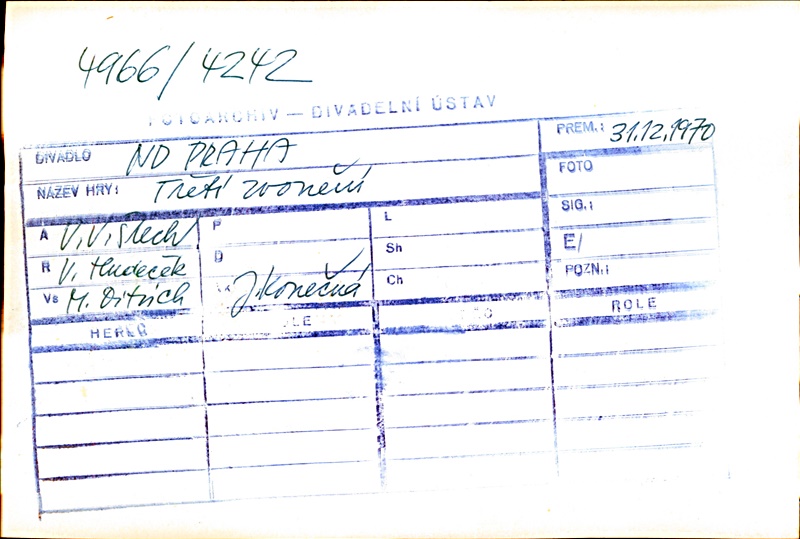 4966/4242
FOTOARCHIV — DIVADELNÍ ÚSTAV
DIVADLO ND PRAHA
PREM.: 31.12.1970
NÁZEV HRY: Třetí zvonění
FOTO
SIG.:
A V.V. Štech
P
L
E/
R V. Hudeček
D
Sh
POZN.:
Vs M. Ditrich
J. Konečná
Ch
HEREC
ROLE